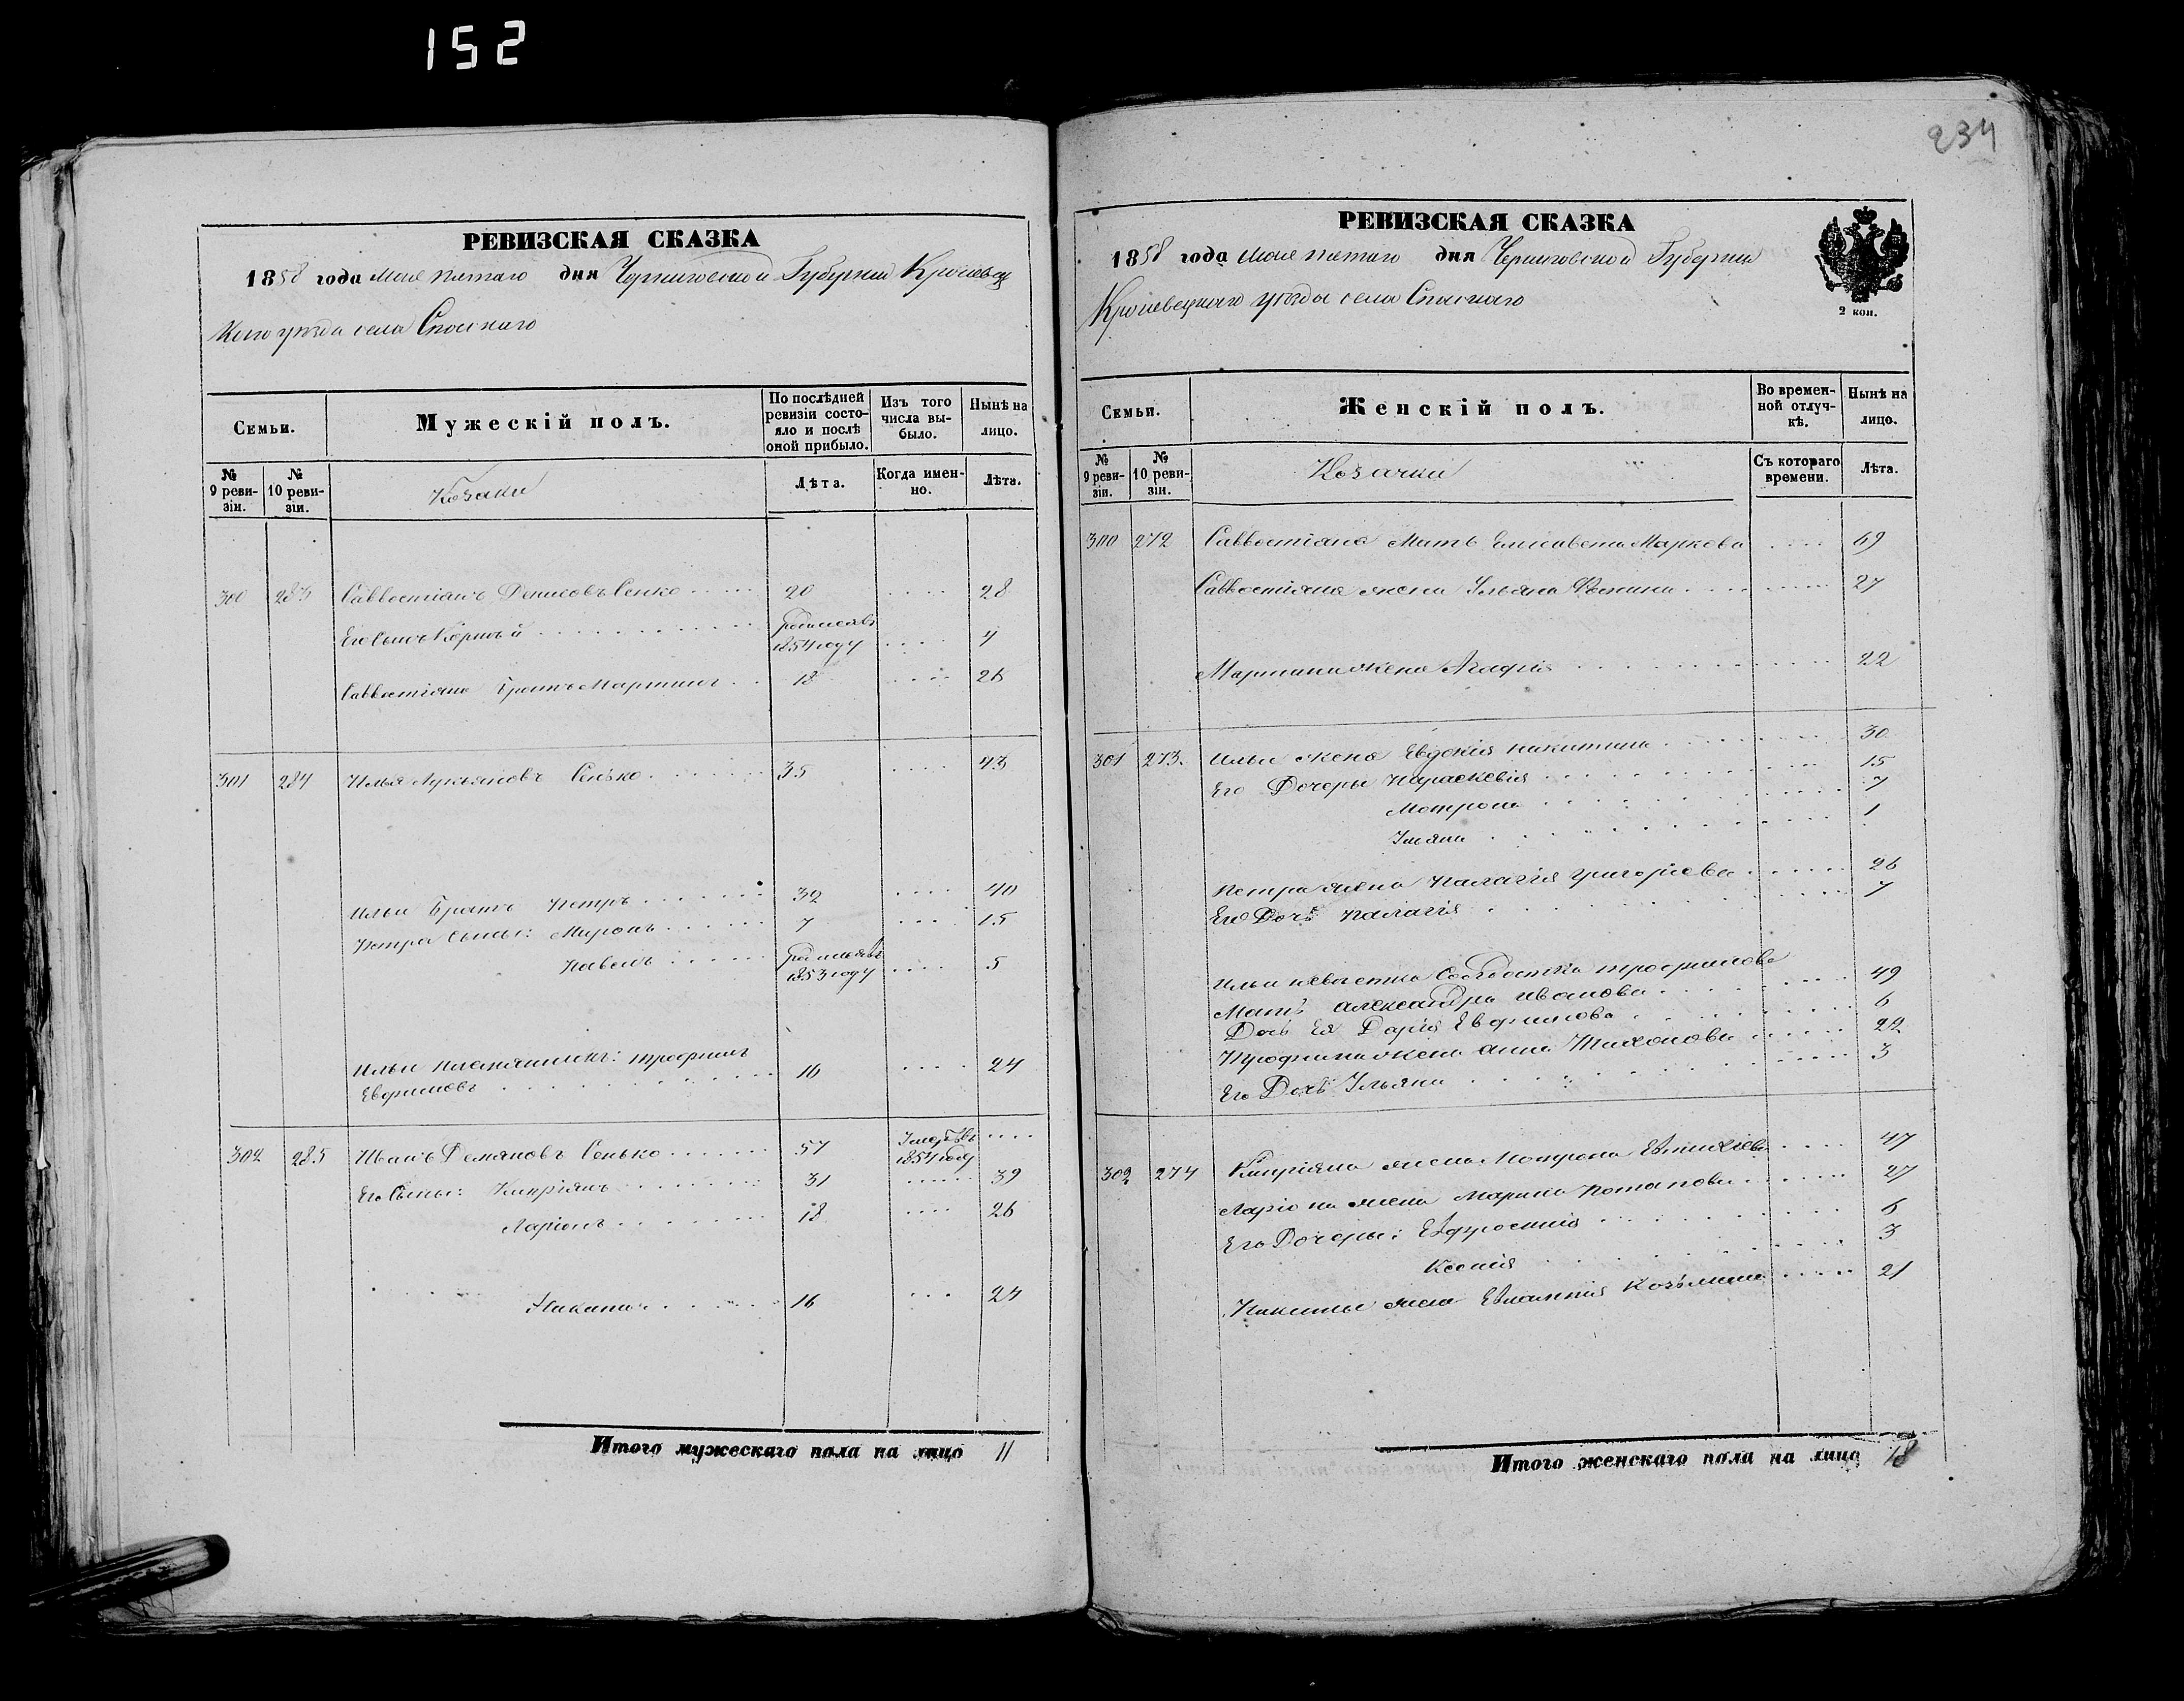 152
РЕВИЗСКАЯ СКАЗКА
1858 года Мая пятаго дня Черниговской Губернии Кролевец
каго уезда села Спаскаго
Семьи.
Мужескій полъ.
По послѣдней ревизіи состояло и послѣ оной прибыло.
Изъ того числа выбыло.
Нынѣ на лицо.
№ 9 ревизіи.
№ 10 ревизіи.
Козаки
Лѣта.
Когда именно.
Лѣта.
300 283 Савостіанъ Денисовъ Сенко 20 .... 28
Его Сынъ Корній родился въ 1854 году .... 4
Савостіана Братъ Мартинъ 18 .... 26
301 284 Илья Лукьяновъ Сенько 35 .... 43
Ильи Братъ Петръ 32 .... 40
Петра Сыны: Миронъ 7 .... 15
Павелъ родился въ 1853 году .... 5
Ильи племянникъ: Трофимъ
Евфимовъ 16 .... 24
302 285 Иванъ Демяновъ Сенько 57 Умеръ въ 1854 году ....
Его Сыны: Кипріянъ 31 .... 39
Ларіонъ 18 .... 26
Никита 16 .... 24
Итого мужескаго пола на лицо 11
234
РЕВИЗСКАЯ СКАЗКА
1858 года Мая пятаго дня Черниговской Губернии
Кролевецкаго уезда села Спаскаго
2 коп.
Семьи.
Женскій полъ.
Во временной отлучкѣ.
Нынѣ на лицо.
№ 9 ревизіи.
№ 10 ревизіи.
Козачки
Съ котораго времени.
Лѣта.
300 272 Савостіана Мать Елисавета Маркова .... 69
Савостіяна жена Ульяна 27
Мартина жена Агафія 22
301 273. Ильи жена Евдокія Никитина 30
Его Дочери Параскевія 15
Мотрона 7
Уляна 1
Петра жена Палагія Григоріева 26
Его Дочь Палагія 7
Ильи невестка Трофимова
Мать Александра Иванова 49
Дочь Ея Дарія Евфимова 6
Трофима жена Анна Тихонова 22
Его Дочь Ульяна 3
302 274 Кипріяна жена Мотрона 47
Ларіона жена Марина Потапова 27
Его Дочери: Евфросинія 6
Ксенія 3
Никиты жена Козьмина 21
Итого женскаго пола на лицо 18